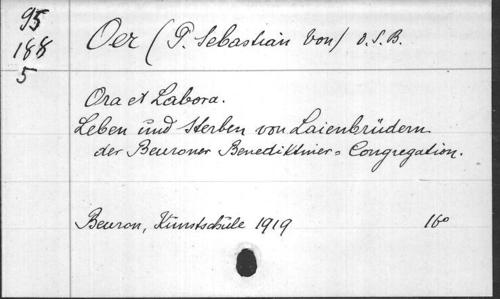 95
188
5
Oer (P. Sebastian von) O.S.B.
Ora et Labora.
Leben und Sterben von Laienbrüdern
der Beuroner Benediktiner = Congregation.
Beuron, Kunstschule 1919
16°